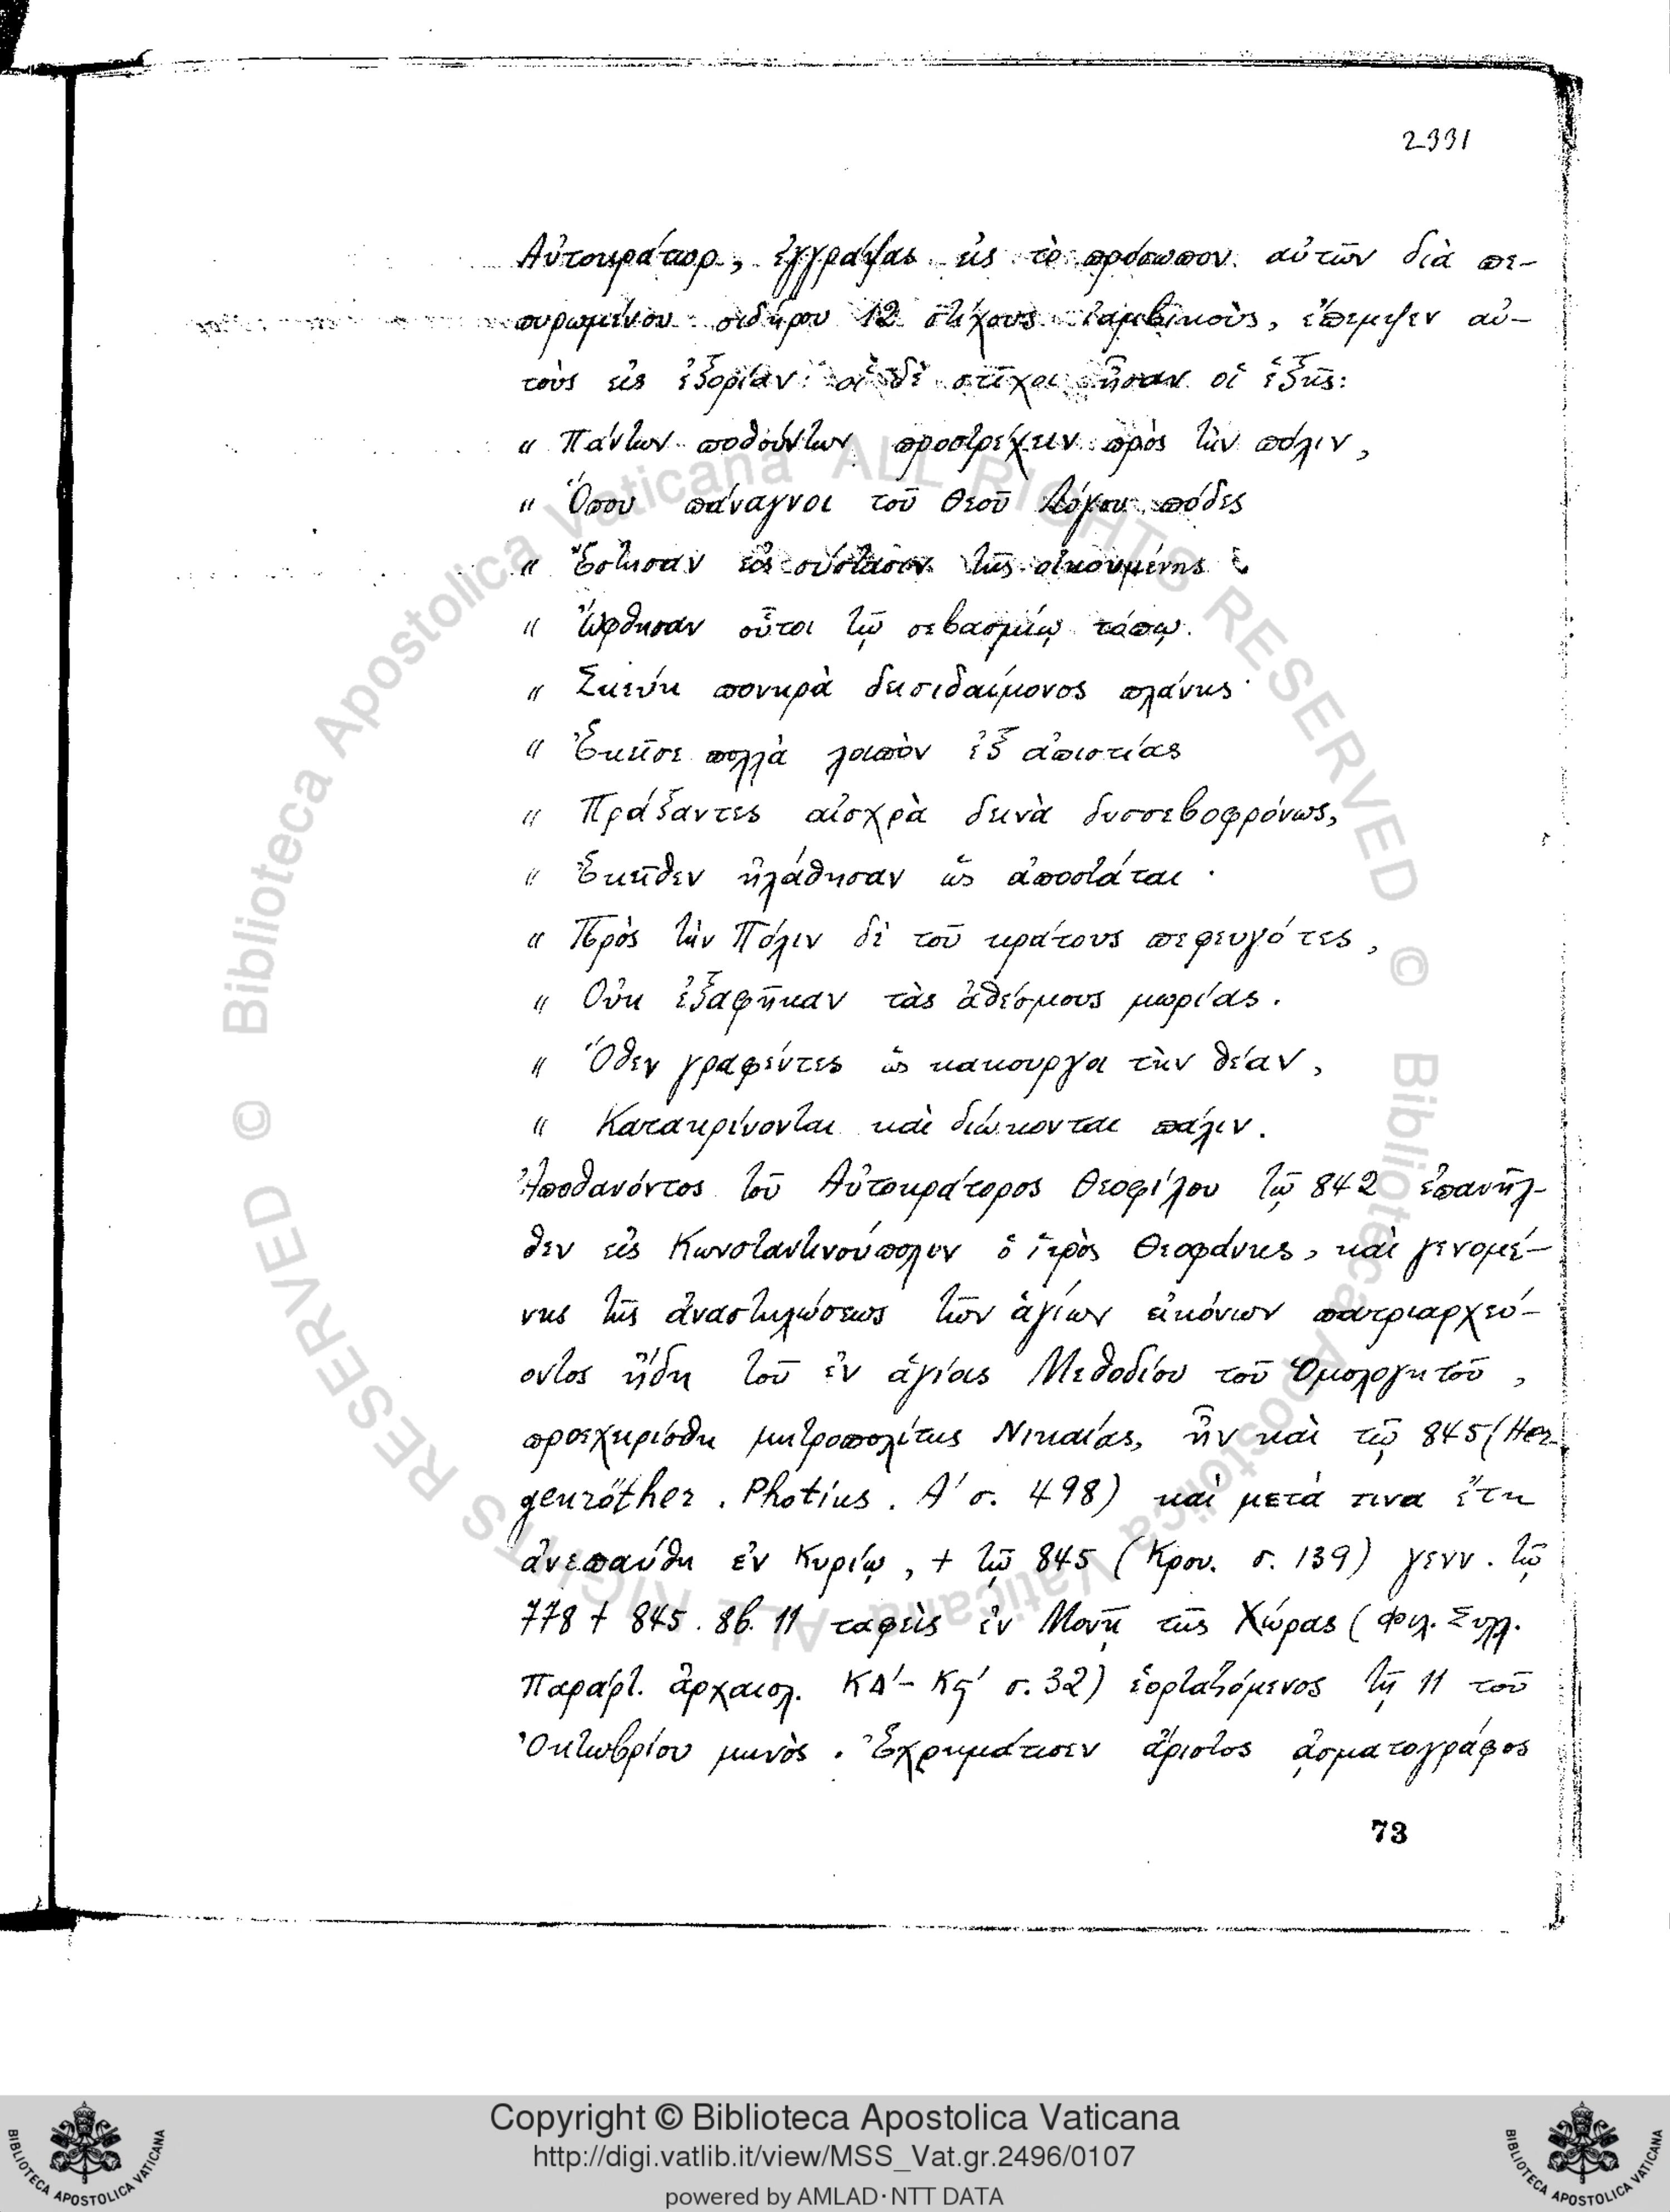 2331
Αὐτοκράτωρ, ἐγγράψας εἰς τὸ πρόσωπον αὐτῶν διὰ πε-
πυρωμένου σιδήρου 12 στίχους ἰαμβικοὺς, ἔπεμψεν αὐ-
τοὺς εἰς ἐξορίαν· οἱ δὲ στίχοι ἦσαν οἱ ἑξῆς:
" Πάντων ποθούντων προστρέχειν πρὸς τὴν πόλιν,
" Ὅπου πάναγνοι τοῦ Θεοῦ Λόγου πόδες
" Ἔστησαν εἰς σύστασιν τῆς οἰκουμένης
" Ὤφθησαν οὗτοι τῷ σεβασμίῳ τόπῳ.
" Σκεύη πονηρὰ δεισιδαίμονος πλάνης·
" Ἐκεῖσε πολλὰ λοιπὸν ἐξ ἀπιστίας
" Πράξαντες αἰσχρὰ δεινὰ δυσσεβοφρόνως,
" Ἐκεῖθεν ἠλάθησαν ὡς ἀποστάται·
" Πρὸς τὴν Πόλιν δὲ τοῦ κράτους πεφευγότες,
" Οὐκ ἐξαφῆκαν τὰς ἀθέσμους μωρίας.
" Ὅθεν γραφέντες ὡς κακουργοι τὴν θέαν,
" Κατακρίνονται καὶ διώκονται πάλιν.
Ἀποθανόντος τοῦ Αὐτοκράτορος Θεοφίλου τῷ 842 ἐπανῆλ-
θεν εἰς Κωνσταντινούπολιν ὁ ἱερὸς Θεοφάνης, καὶ γενομέ-
νης τῆς ἀναστηλώσεως τῶν ἁγίων εἰκόνων πατριαρχεύ-
οντος ἤδη τοῦ ἐν ἁγίοις Μεθοδίου τοῦ Ὁμολογητοῦ,
προεχειρίσθη μητροπολίτης Νικαίας, ἦν καὶ τῷ 845 (Her-
genröther. Photius. Α' σ. 498) καὶ μετά τινα ἔτη
ἀνεπαύθη ἐν Κυρίῳ, + τῷ 845 (Κρου. σ. 139) γενν. τῷ
778 + 845. 8β. 11 ταφεὶς ἐν Μονῇ τῆς Χώρας (Φιλ. Συλλ.
Παράρτ. ἀρχαιολ. ΚΔ'- Κϛ' σ. 32) ἑορταζόμενος τῇ 11 τοῦ
Ὀκτωβρίου μηνὸς. Ἐχρημάτισεν ἄριστος ᾀσματογράφος
73
© Biblioteca Apostolica Vaticana ALL RIGHTS RESERVED
© Biblioteca Apostolica Vaticana ALL RIGHTS RESERVED
Copyright © Biblioteca Apostolica Vaticana
http://digi.vatlib.it/view/MSS_Vat.gr.2496/0107
powered by AMLAD·NTT DATA
BIBLIOTECA APOSTOLICA VATICANA
BIBLIOTECA APOSTOLICA VATICANA